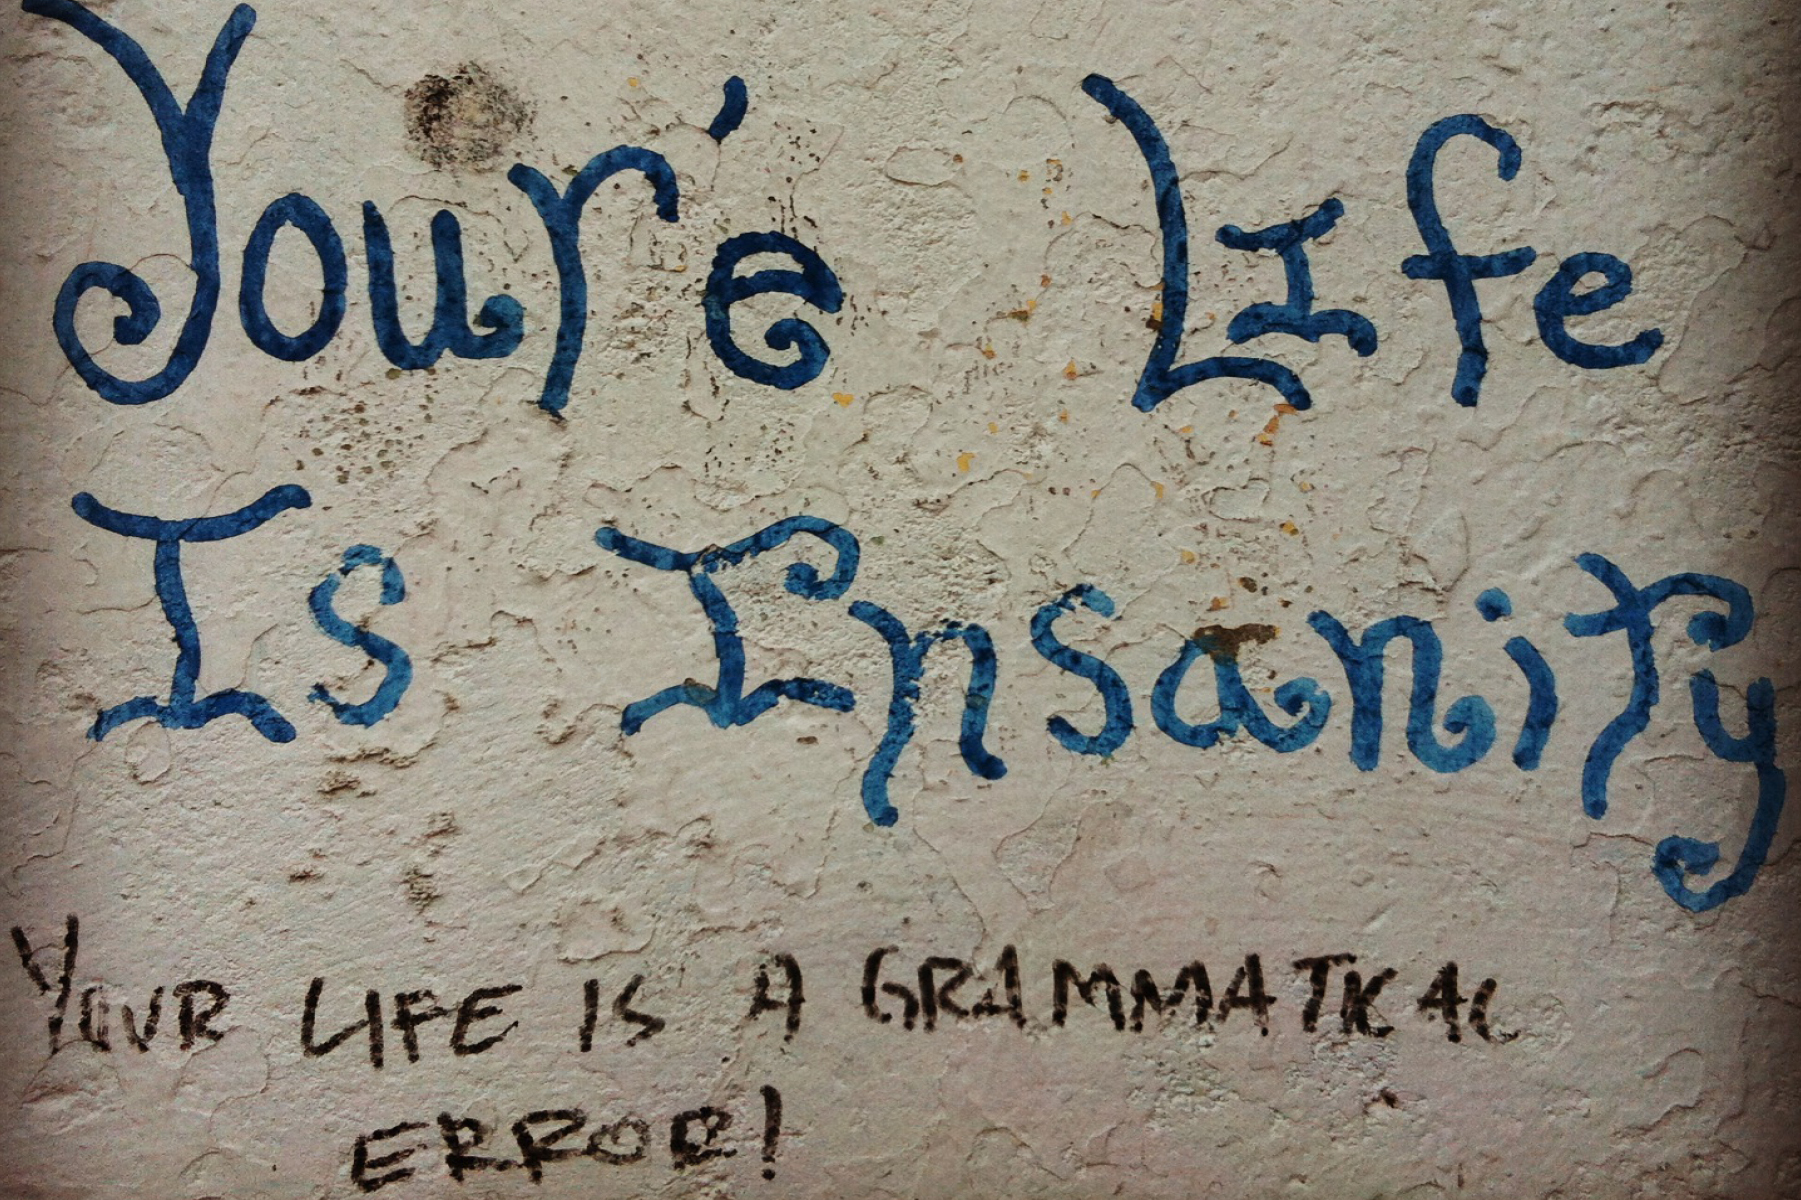 Your'e Life
Is Insanity
YOUR LIFE IS A GRAMMATICAL
ERROR!